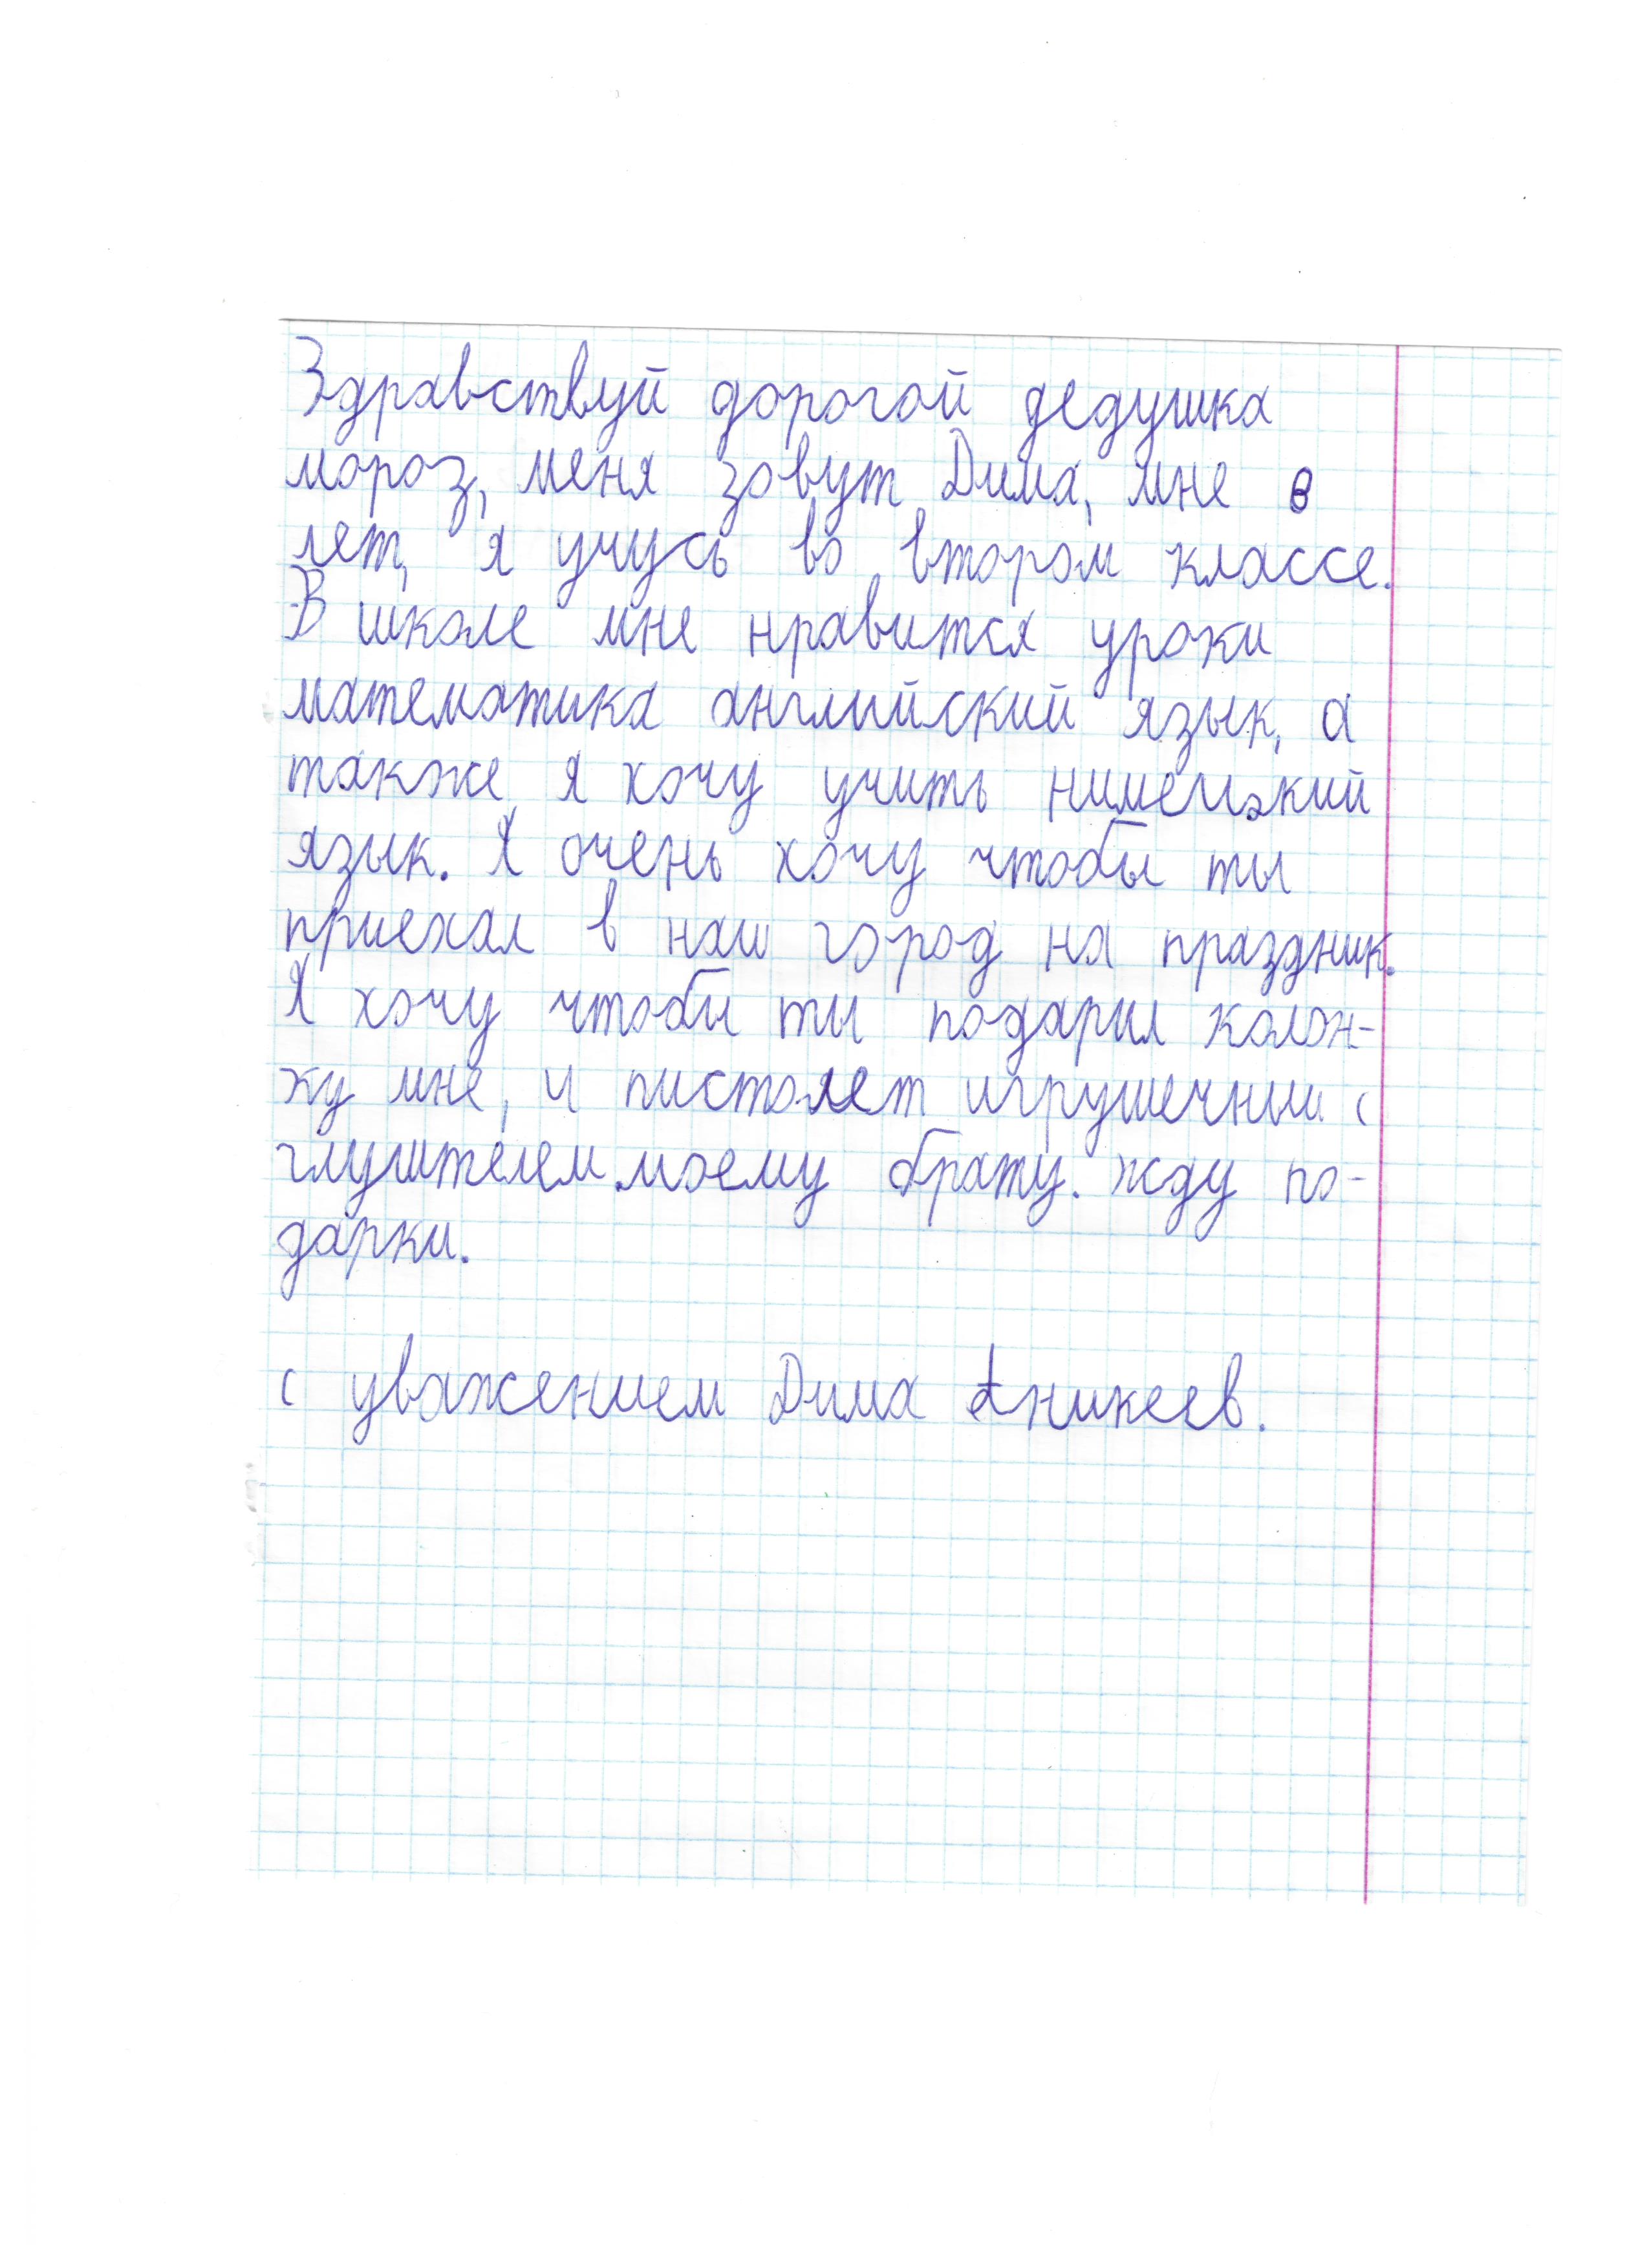 Здравствуй дорогой дедушка
мороз, меня зовут Дима, мне 8
лет, я учусь во втором классе.
В школе мне нравится уроки
математика английский язык, а
также я хочу учить нимецкий
язык. Я очень хочу чтобы ты
приехал в наш город на праздник.
Я хочу чтобы ты подарил колон-
ку мне, и пистолет игрушечный с
глушителем моему брату. жду по-
дарки.
с уважением Дима Аникеев.